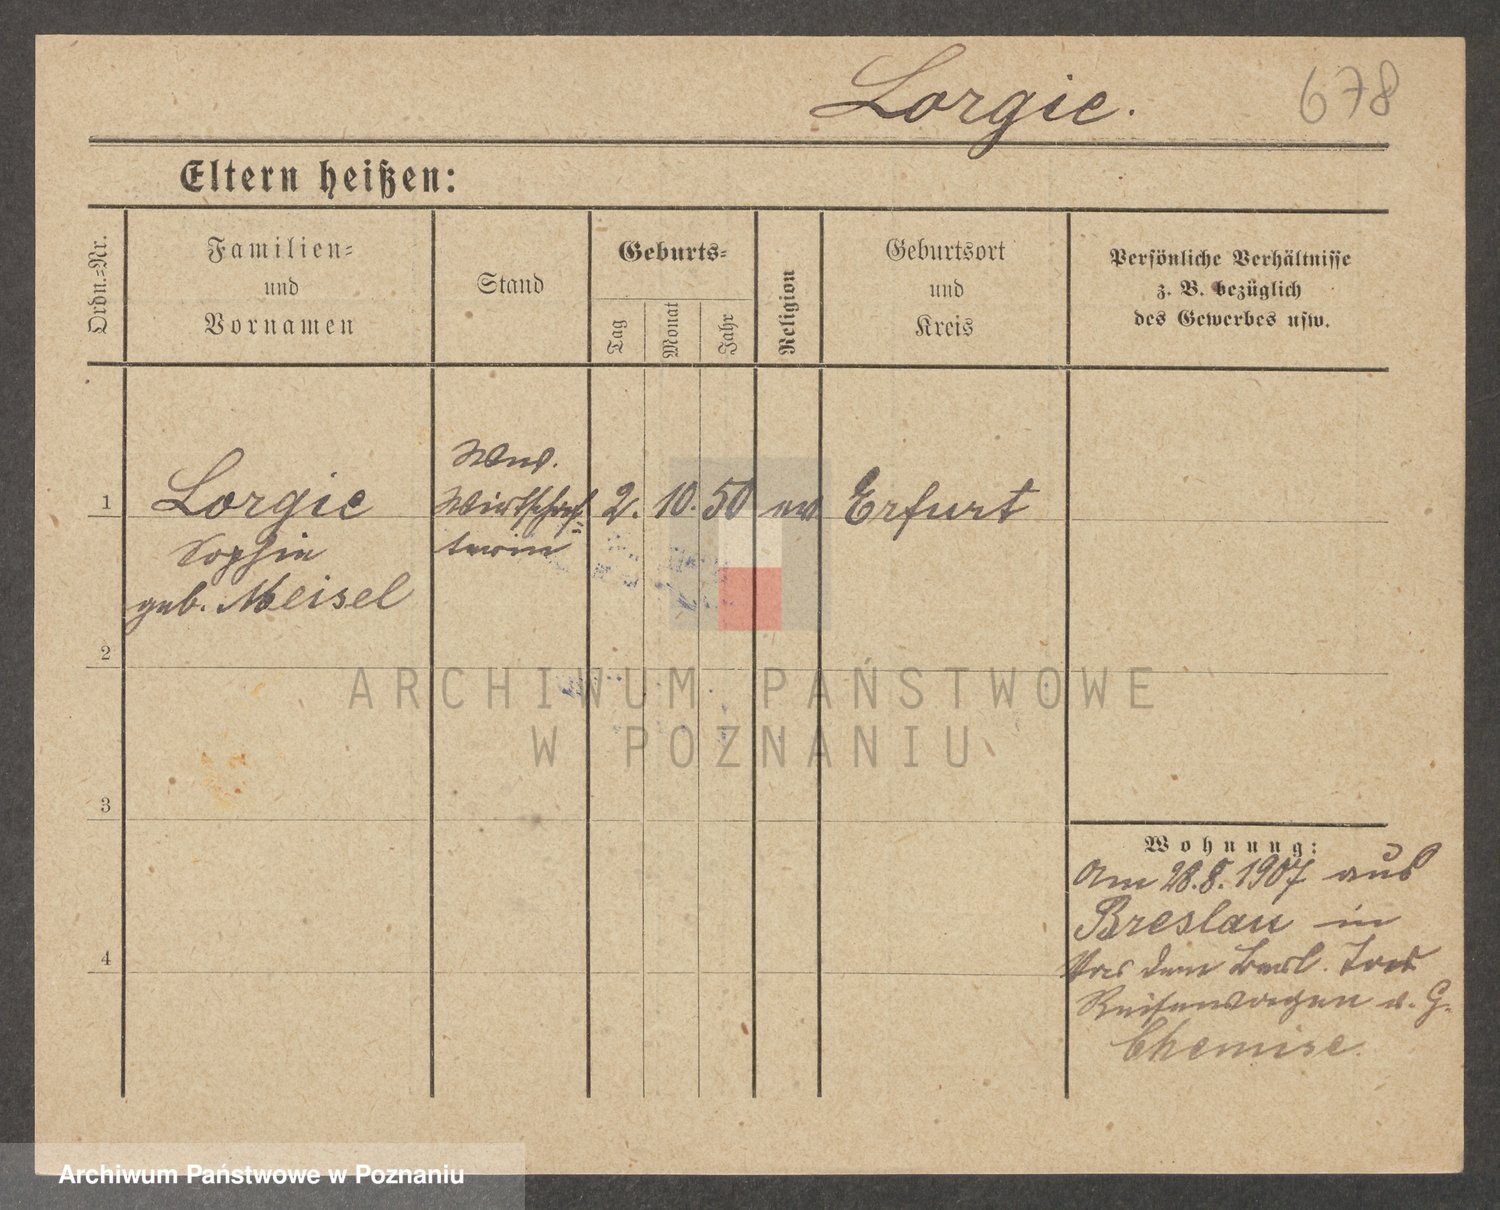 Lorgie. 678
Eltern heißen:
Ordn.-Nr.
Familien-
und
Vornamen
Stand
Geburts-
Tag
Monat
Jahr
Religion
Geburtsort
und
Kreis
Persönliche Verhältnisse
z. B. bezüglich
des Gewerbes usw.
1
Lorgie
Sophie
geb. Meisel
Wwe.
Wirtschaf-
terin
2. 10. 50 ev Erfurt
2
ARCHIWUM PAŃSTWOWE
W POZNANIU
3
4
Wohnung:
Am 28.8.1907 aus
Breslau in
Vor dem Berl. Tor
Reisewagen v. G.
Chemise.
Archiwum Państwowe w Poznaniu